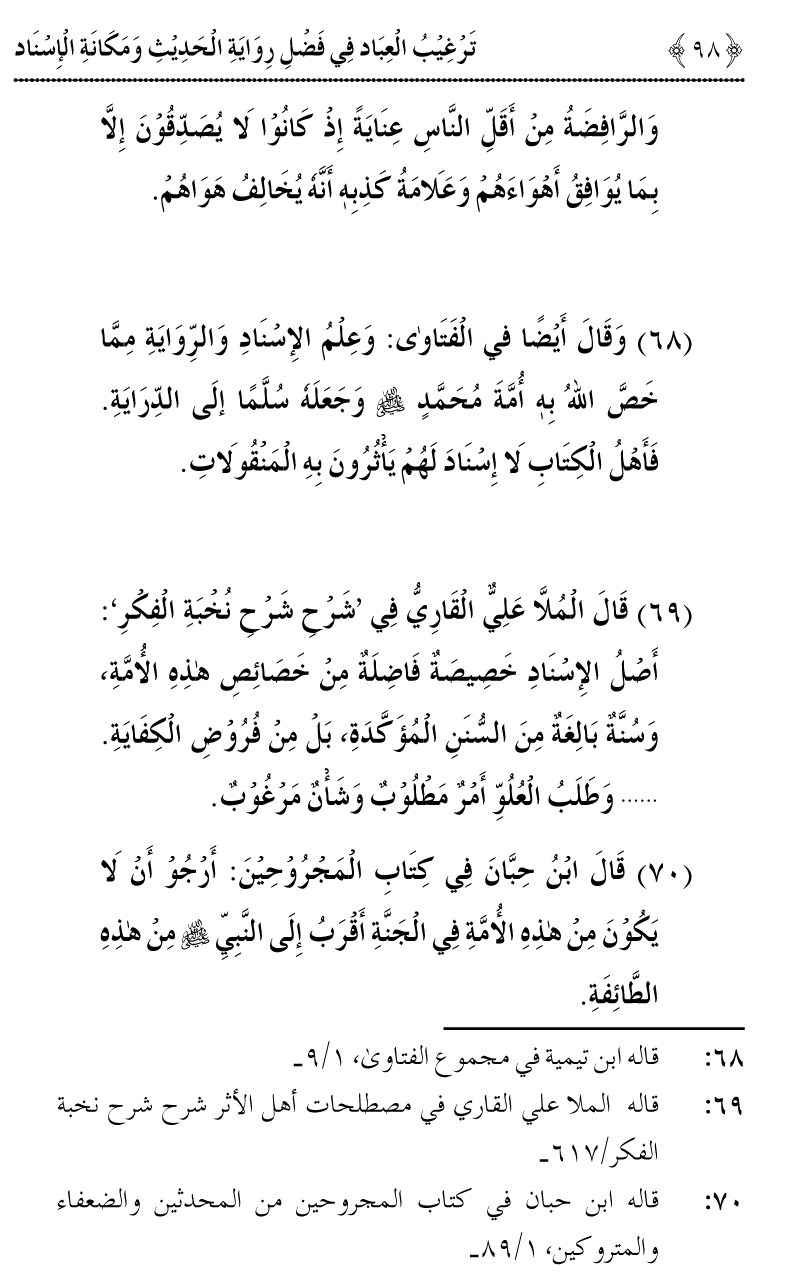 ﴿٩٨﴾ تَرْغِيْبُ الْعِبَاد فِي فَضْلِ رِوَايَةِ الْحَدِيْثِ وَمَكَانَةِ الْإِسْنَاد
وَالرَّافِضَةُ مِنْ أَقَلِّ النَّاسِ عِنَايَةً إِذْ كَانُوْا لَا يُصَدِّقُوْنَ إِلَّا
بِمَا يُوَافِقُ أَهْوَاءَهُمْ وَعَلَامَةُ كَذِبِهٖ أَنَّهٗ يُخَالِفُ هَوَاهُمْ.
(٦٨) وَقَالَ أَيْضًا في الْفَتَاوٰى: وَعِلْمُ الإِسْنَادِ وَالرِّوَايَةِ مِمَّا
خَصَّ اللهُ بِهٖ أُمَّةَ مُحَمَّدٍ ﷺ وَجَعَلَهٗ سُلَّمًا إلَى الدِّرَايَةِ.
فَأَهْلُ الْكِتَابِ لَا إِسْنَادَ لَهُمْ يَأْثُرُونَ بِهِ الْمَنْقُولَاتِ.
(٦٩) قَالَ الْمُلَّا عَلِيٌّ الْقَارِيُّ فِي ’شَرْحِ شَرْحِ نُخْبَةِ الْفِكْرِ‘:
أَصْلُ الإِسْنَادِ خَصِيصَةٌ فَاضِلَةٌ مِنْ خَصَائِصِ هٰذِهِ الأُمَّةِ،
وَسُنَّةٌ بَالِغَةٌ مِنَ السُّنَنِ الْمُؤَكَّدَةِ، بَلْ مِنْ فُرُوْضِ الْكِفَايَةِ.
...... وَطَلَبُ الْعُلُوِّ أَمْرٌ مَطْلُوْبٌ وَشَأْنٌ مَرْغُوْبٌ.
(٧٠) قَالَ ابْنُ حِبَّانَ فِي كِتَابِ الْمَجْرُوْحِيْنَ: أَرْجُوْ أَنْ لَا
يَكُوْنَ مِنْ هٰذِهِ الأُمَّةِ فِي الْجَنَّةِ أَقْرَبُ إِلَى النَّبِيِّ ﷺ مِنْ هٰذِهِ
الطَّائِفَةِ.
٦٨: قاله ابن تيمية في مجموع الفتاوىٰ، ٩/١ـ
٦٩: قاله الملا علي القاري في مصطلحات أهل الأثر شرح شرح نخبة
الفكر/٦١٧ـ
٧٠: قاله ابن حبان في كتاب المجروحين من المحدثين والضعفاء
والمتروكين، ٨٩/١ـ